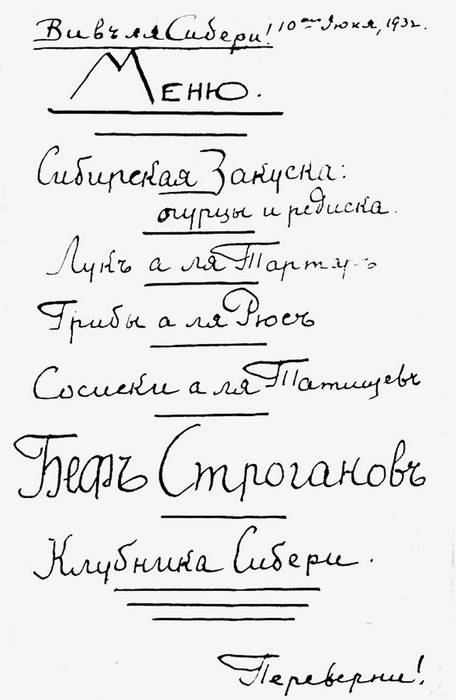 Вивъ ля Сибери! 10ое Июня, 1932.
Меню.
Сибирская Закуска:
огурцы и редиска.
Лукъ а ля Тартаръ
Грибы а ля Рюсъ
Сосиски а ля Татищевъ
Бефъ Строгановъ
Клубника Сибери.
Переверни!